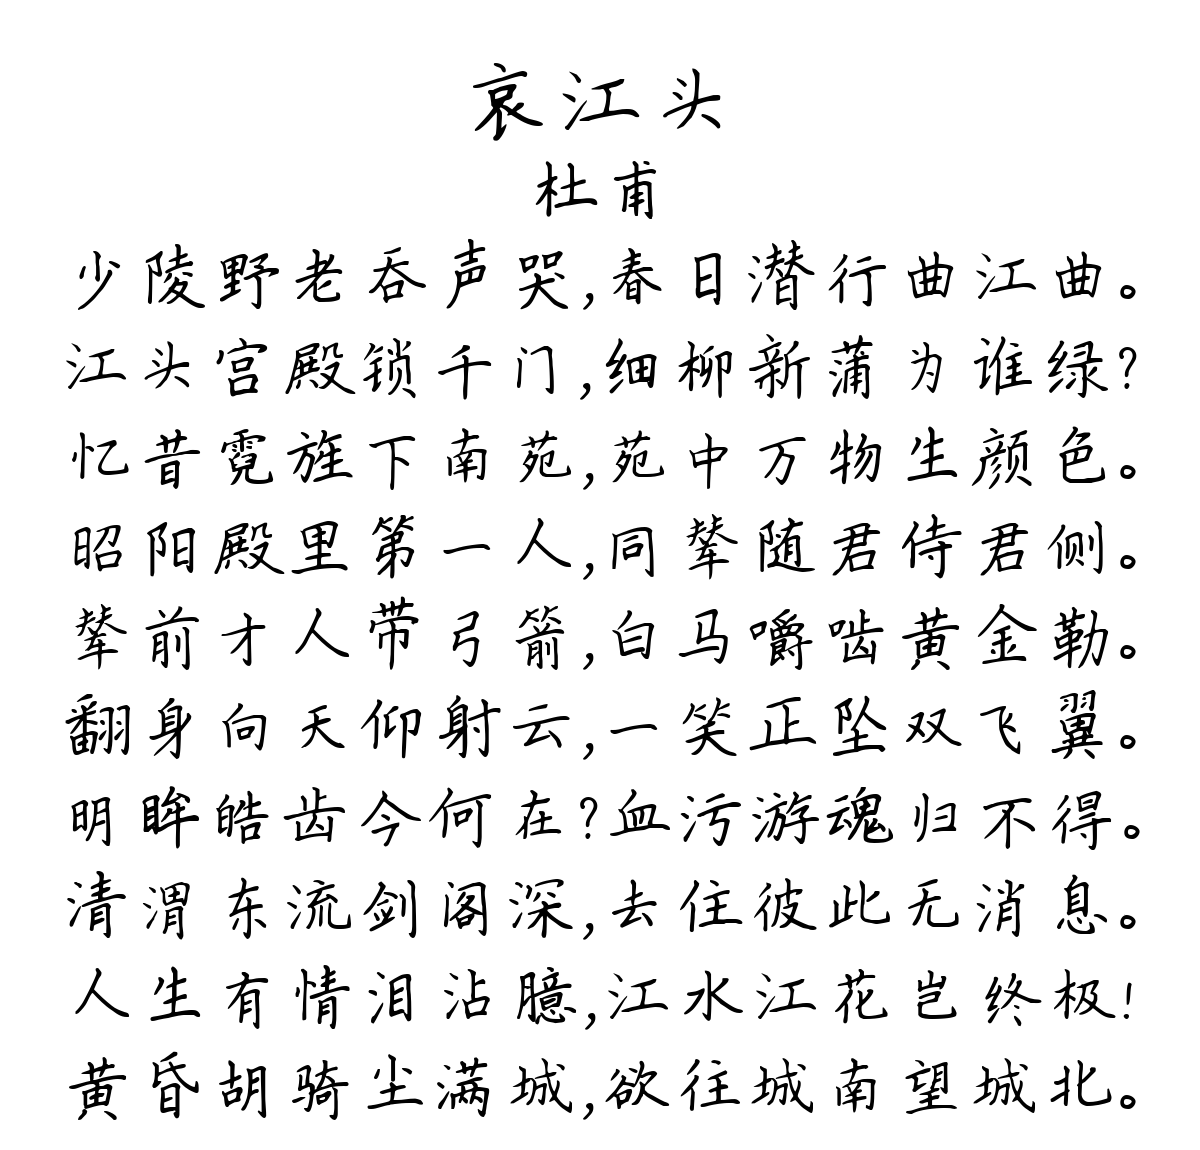 哀江头
杜甫
少陵野老吞声哭,春日潜行曲江曲。
江头宫殿锁千门,细柳新蒲为谁绿?
忆昔霓旌下南苑,苑中万物生颜色。
昭阳殿里第一人,同辇随君侍君侧。
辇前才人带弓箭,白马嚼啮黄金勒。
翻身向天仰射云,一笑正坠双飞翼。
明眸皓齿今何在?血污游魂归不得。
清渭东流剑阁深,去住彼此无消息。
人生有情泪沾臆,江水江花岂终极!
黄昏胡骑尘满城,欲往城南望城北。